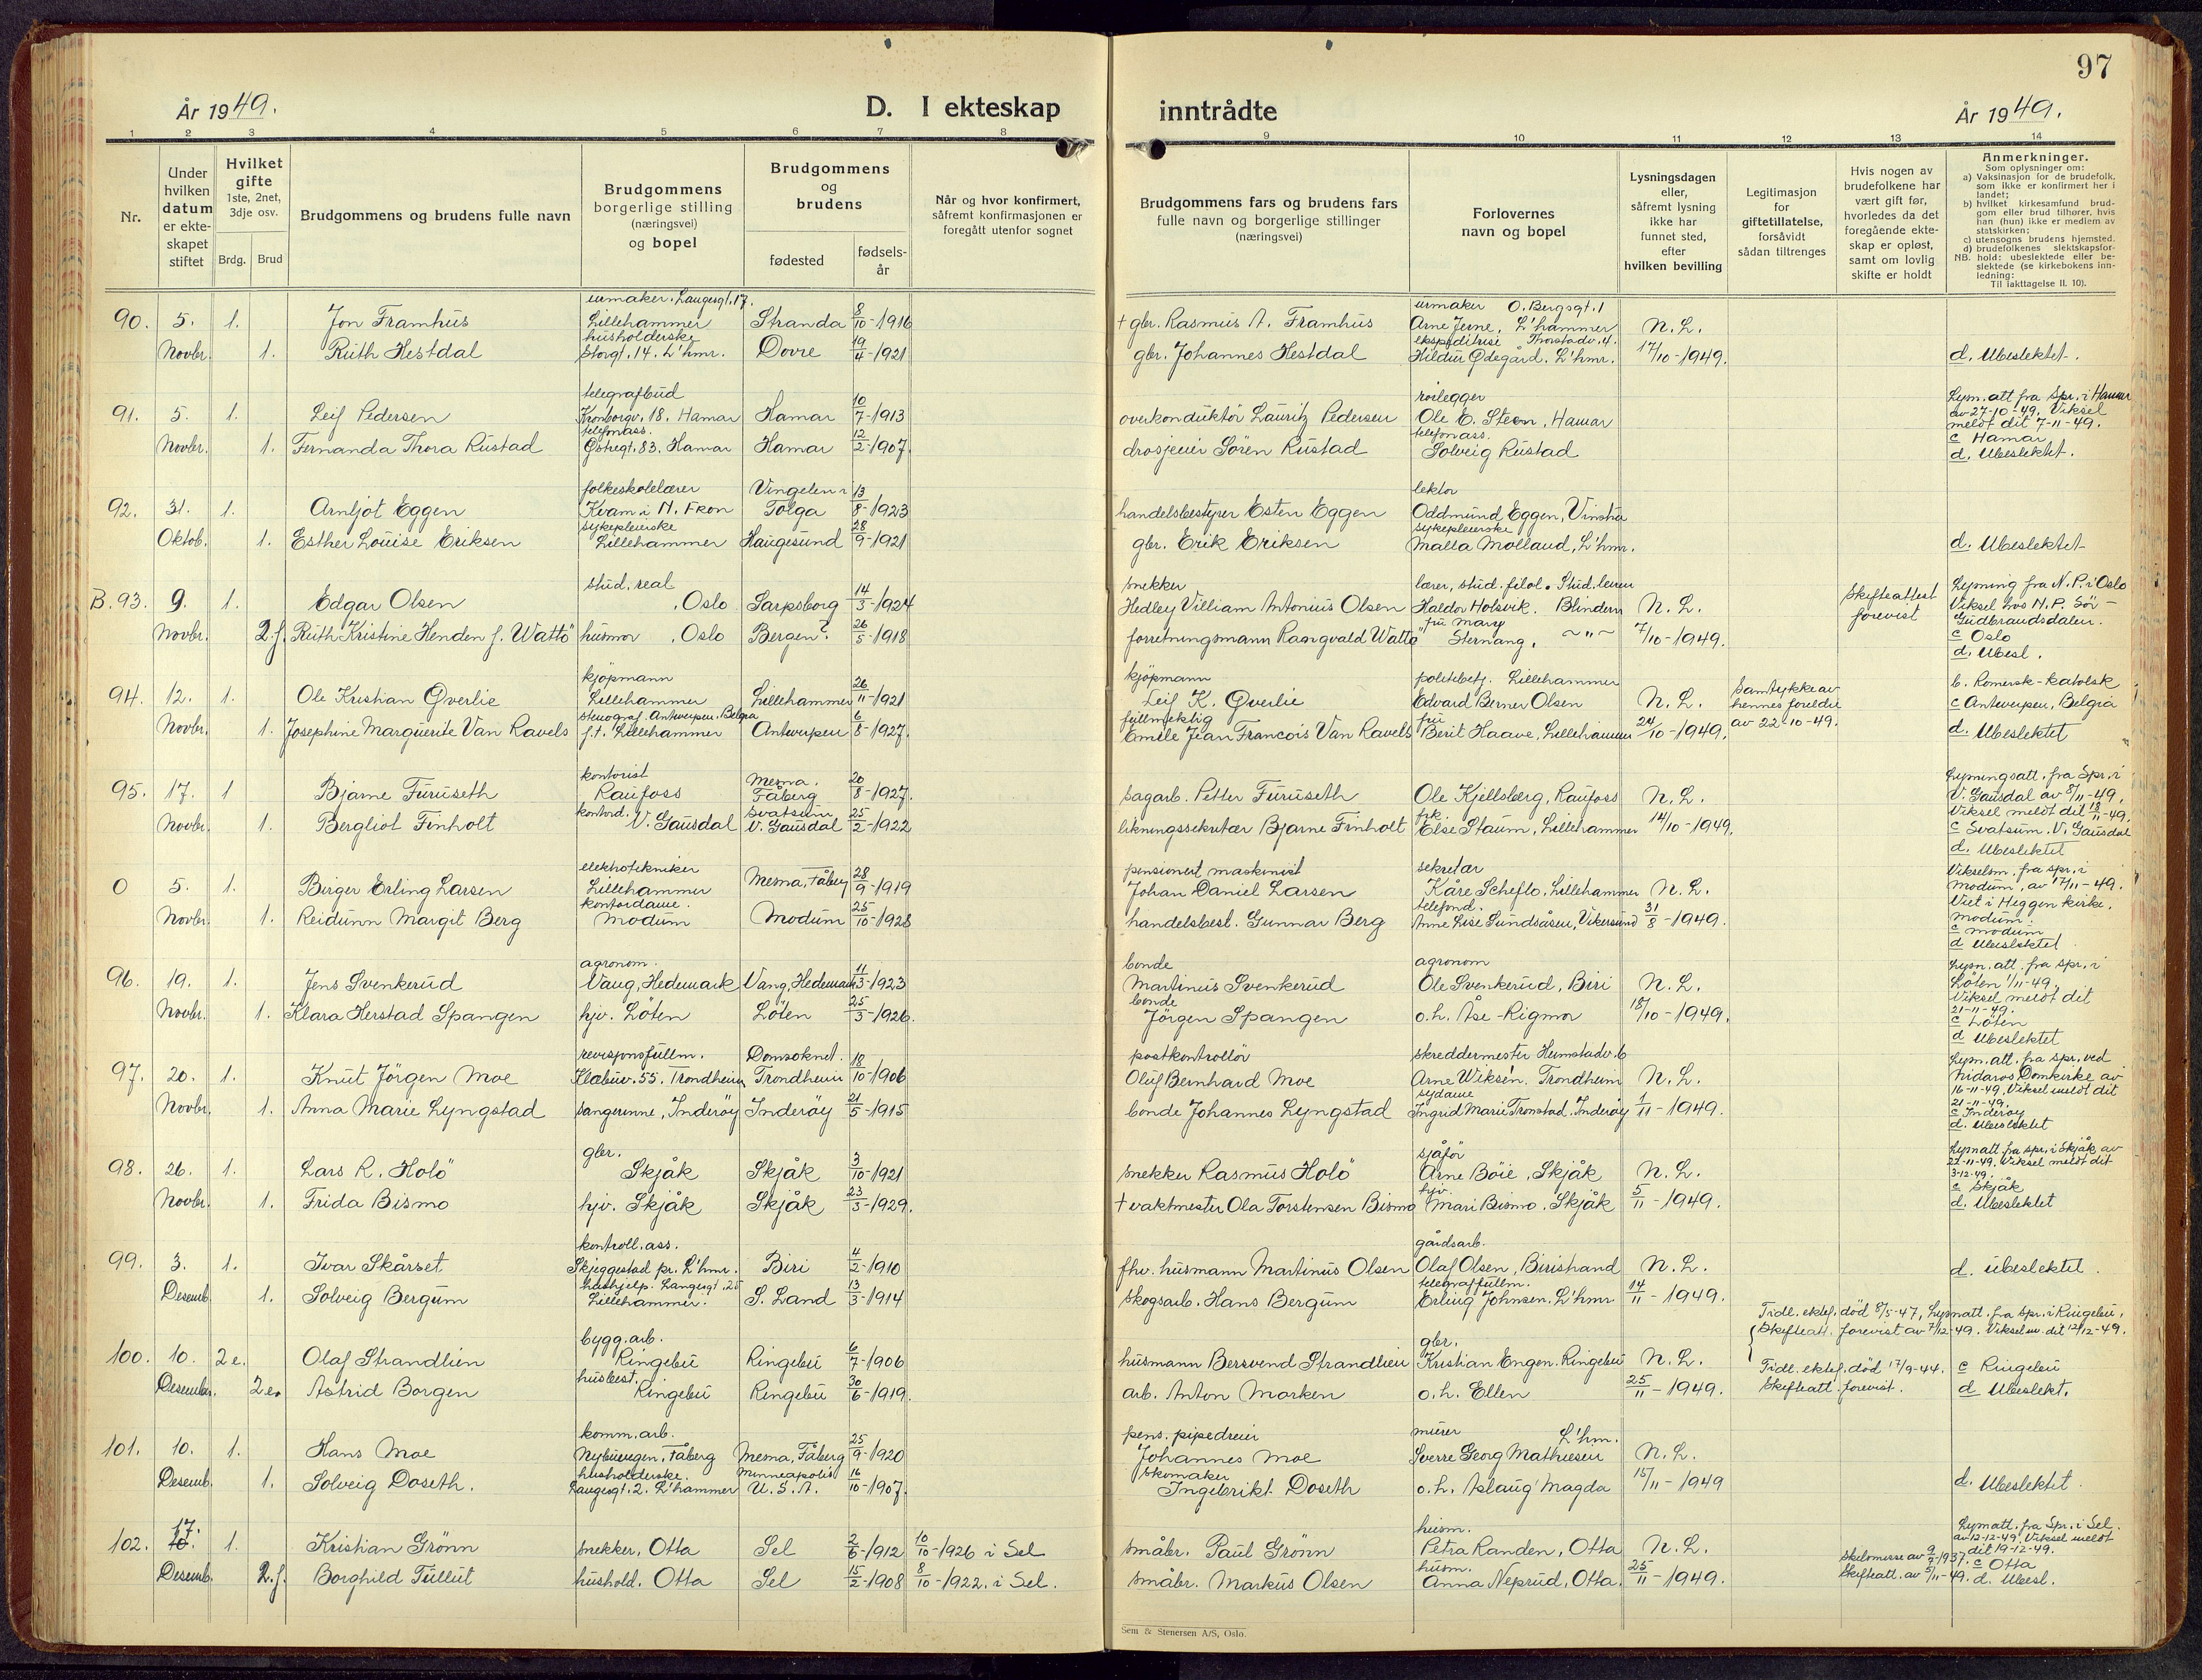 97
År 1949.
D. I ekteskap
inntrådte
År 1949.
1 2 3 4 5 6 7 8
9 10 11 12 13 14
Nr.
Under hvilken datum er ekteskapet stiftet
Hvilket gifte
1ste, 2net, 3dje osv.
Brdg. Brud
Brudgommens og brudens fulle navn
Brudgommens borgerlige stilling (næringsvei) og bopel
Brudgommens og brudens
fødested
fødselsår
Når og hvor konfirmert, såfremt konfirmasjonen er foregått utenfor sognet
Brudgommens fars og brudens fars fulle navn og borgerlige stillinger (næringsvei)
Forlovernes navn og bopel
Lysningsdagen eller, såfremt lysning ikke har funnet sted, efter hvilken bevilling
Legitimasjon for giftetillatelse, forsåvidt sådan tiltrenges
Hvis nogen av brudefolkene har vært gift før, hvorledes da det foregående ekteskap er opløst, samt om lovlig skifte er holdt
Anmerkninger.
Som oplysninger om:
a) Vaksinasjon for de brudefolk, som ikke er konfirmert her i landet;
b) hvilket kirkesamfund brudgom eller brud tilhører, hvis han (hun) ikke er medlem av statskirken;
c) utensogns brudens hjemsted.
d) brudefolkenes slektskapsforhold: ubeslektede eller beslektede (se kirkebokens innledning:
NB.
Til iakttagelse II. 10).
urmaker. Langesgt. 17.
90. 5. 1. Jon Framhus Lillehammer Stranda 8/10-1916
husholderske
Novbr. 1. Ruth Hestdal Storgt. 14. L'hmr. Dovre 19/4-1921
urmaker O. Bergsgt. 1
† gbr. Rasmus A. Framhus Arne Jerne, L'hammer N. L.
ekspeditrise Thorstadv. 4.
gbr. Johannes Hestdal Hildur Ødegård. L'hmr. 17/10-1949. d. Ubeslektet.
telegrafbud
91. 5. 1. Leif Pedersen Kronborgv. 18. Hamar Hamar 10/7-1913
telefonass.
Novbr. 1. Fernanda Thora Rustad Østregt. 83. Hamar Hamar 12/2-1907.
rørlegger
overkonduktör Lauritz Pedersen Ole E. Steen, Hamar
telefonass.
drosjeeier Sören Rustad Solveig Rustad
Lysn. att fra Spr. i Hamar
av 27-10-49. Viksel
meldt dit 7-11-49.
c Hamar
d. Ubeslektet.
folkeskolelærer Vingelen i
92. 31. 1. Arnljot Eggen Kvam i N. Fron Tolga 13/8-1923
sykepleierske
Oktob. 1. Esther Louise Eriksen Lillehammer Haugesund 28/9-1921
lektor
handelsbestyrer Esten Eggen Oddmund Eggen, Vinstra
sykepleierske
gbr. Erik Eriksen Malla Molland, L'hmr. d. Ubeslektet
stud. real
B. 93. 9. 1. Edgar Olsen , Oslo Sarpsborg 14/3-1924
Novbr. 2 f. Ruth Kristine Henden f. Wattö husmor , Oslo Bergen? 26/5-1918
snekker lærer, stud. filol. Stud. leiren
Hedley Villiam Antonius Olsen Haldor Holsvik. Blindern N. L.
fru Mary
forretningsmann Ragnvald Wattö Sternang. ~ " ~ 7/10-1949.
Skifteattest forevist
Lysning fra N. P. i Oslo
Viksel hos N. P. Sör-
Gudbrandsdalen.
c Oslo
d. Ubesl.
kjöpmann
94. 12. 1. Ole Kristian Qverlie Lillehammer Lillehammer 26/11-1921
stenograf. Antwerpen. Belgia
Novbr. 1. Josephine Marguerite Van Ravels f.t. Lillehammer Antwerpen 6/8-1927.
kjöpmann politibetj. Lillehammer
Leif K. Qverlie Edvard Berner Olsen N. L.
fullmektig fru
Emile Jean Francois Van Ravels Berit Haave, Lillehammer 24/10-1949.
Samtykke av
hennes foreldre
av 22-10-49.
b. Romersk-katolsk
c Antwerpen, Belgia
d. Ubeslektet
kontorist Mesna.
95. 17. 1 Bjarne Furuseth Raufoss Fåberg 20/8-1927.
kontord. Svatsum
Novbr. 1. Bergliot Finholt V. Gausdal V. Gausdal 25/2-1922
sagarb. Petter Furuseth Ole Kjellsberg, Raufoss N. L.
frk.
likningssekretær Bjarne Finholt Else Staum, Lillehammer 14/10-1949.
Lysningsatt. fra Spr. i
V. Gausdal av 8/11-49.
Viksel meldt dit 18/11-49.
c Svatsum. V. Gausdal
d. Ubeslektet
elektrotekniker
0 5. 1. Birger Erling Larsen Lillehammer Mesna, Fåberg 28/9-1919
kontordame.
Novbr. 1. Reidunn Margit Berg Modum Modum 25/10-1928
pensjonert maskinist sekretær
Johan Daniel Larsen Kåre Scheflo. Lillehammer N. L.
telefond.
handelsbest. Gunnar Berg Anne Lise Sundsåsen, Vikersund 31/8-1949.
Vikselsm. fra spr. i
Modum, av 17/11-49.
Viet i Heggen kirke.
Modum.
c Modum
d Ubeslektet
agronom.
96. 19. 1. Jens Svenkerud Vang, Hedemark Vang, Hedemark 11/3-1923
Novbr. 1. Klara Herstad Spangen hjv. Löten Löten 25/3-1926.
bonde agronom
Martinus Svenkerud Ole Svenkerud, Biri N. L.
bonde
Jörgen Spangen o.h. Åse-Rigmor 18/10-1949.
Lysn. att. fra spr. i
Löten 1/11-49.
Viksel meldt dit
21-11-49.
c Löten
d Ubeslektet
revisjonsfullm. Domsoknet.
97. 20. 1. Knut Jörgen Moe Klæbuv. 55. Trondheim Trondheim 18/10-1906
Novbr. 1. Anna Marie Lyngstad sangerinne, Inderöy Inderöy 21/5-1915
postkontrollör skreddermester Heimstadv. 6
Oluf Bernhard Moe Arne Wiksén. Trondheim N. L.
sydame
bonde Johannes Lyngstad Ingrid Marie Tronstad. Inderöy 1/11-1949.
Lysn. att. fra spr. ved
Nidaros Domkirke av
16-11-49. Viksel meldt dit
21-11-49.
c Inderöy
d. Ubeslektet
gbr.
98. 26. 1. Lars R. Holö Skjåk Skjåk 3/10-1921
Novbr. 1. Frida Bismo hjv. Skjåk Skjåk 23/3-1929.
sjåför
snekker Rasmus Holö Arne Böie, Skjåk N. L.
hjv.
† vaktmester Ola Torstensen Bismo Mari Bismo. Skjåk 5/11-1949.
Lysnatt fra spr. i Skjåk av
22-11-49. Viksel meldt dit
3-12-49.
c Skjåk
d. Ubeslektet
kontroll. ass.
99. 3. 1. Ivar Skårset Skjeggestad pr. L'hmr. Biri 4/2-1910
hushjelp. Langesgt. 25
Desemb. 1. Solveig Bergum Lillehammer. S. Land 13/3-1914
gårdsarb.
fhv. husmann Martinus Olsen Olaf Olsen, Biristrand N. L. d. Ubeslektet.
telegraffullm.
skogsarb. Hans Bergum Erling Johnsen. L'hmr 14/11-1949.
Tidl. ektef. död 8/5-47, Lysnatt. fra spr. i Ringebu.
Skifteatt. forevist av 7/12-49. Viksel m. dit 12/12-49.
bygg. arb.
100. 10. 2 e. Olaf Strandlien Ringebu Ringebu 6/7-1906
husbest.
Desembr. 2 e. Astrid Borgen Ringebu Ringebu 30/6-1919.
gbr.
husmann Bersvend Strandlien Kristian Engen. Ringebu N. L. Tidl. ektef. död 17/9-44. c Ringebu
arb. Anton Marken o.h. Ellen 25/11-1949. Skifteatt. forevist. d Ubeslekt.
komm. arb.
101. 10. 1. Hans Moe Nybuengen, Fåberg Mesna, Fåberg 25/9-1920
husholderske. Minneapolis
Desemb. 1. Solveig Doseth. Langesgt. 2. L'hammer U. S. A. 16/10-1907.
pens. pipedreier murer L'hm.
Johannes Moe Sverre Georg Mathiesen N. L.
skomaker
Ingebrikt Doseth o.h. Aslaug Magda 15/11-1949 d. Ubeslektet.
17.
102. 10. 1. Kristian Grönn snekker, Otta Sel 2/6-1912 10/10-1926 i Sel
Desemb. 2. f. Borghild Tullut hushold. Otta Sel 15/2-1908 8/10-1922. i Sel.
husm.
småbr. Paul Grönn Petra Randen, Otta N. L.
husm.
småbr. Markus Olsen Anna Neprud, Otta. 25/11-1949.
Skilsmisse av 9/2-1937.
Skifteatt. av 5/11-49.
Lysnatt. fra Spr. i Sel.
av 12-12-49. Viksel meldt
dit 19-12-49.
c Otta
d. Ubesl.
Sem & Stenersen A/S, Oslo.